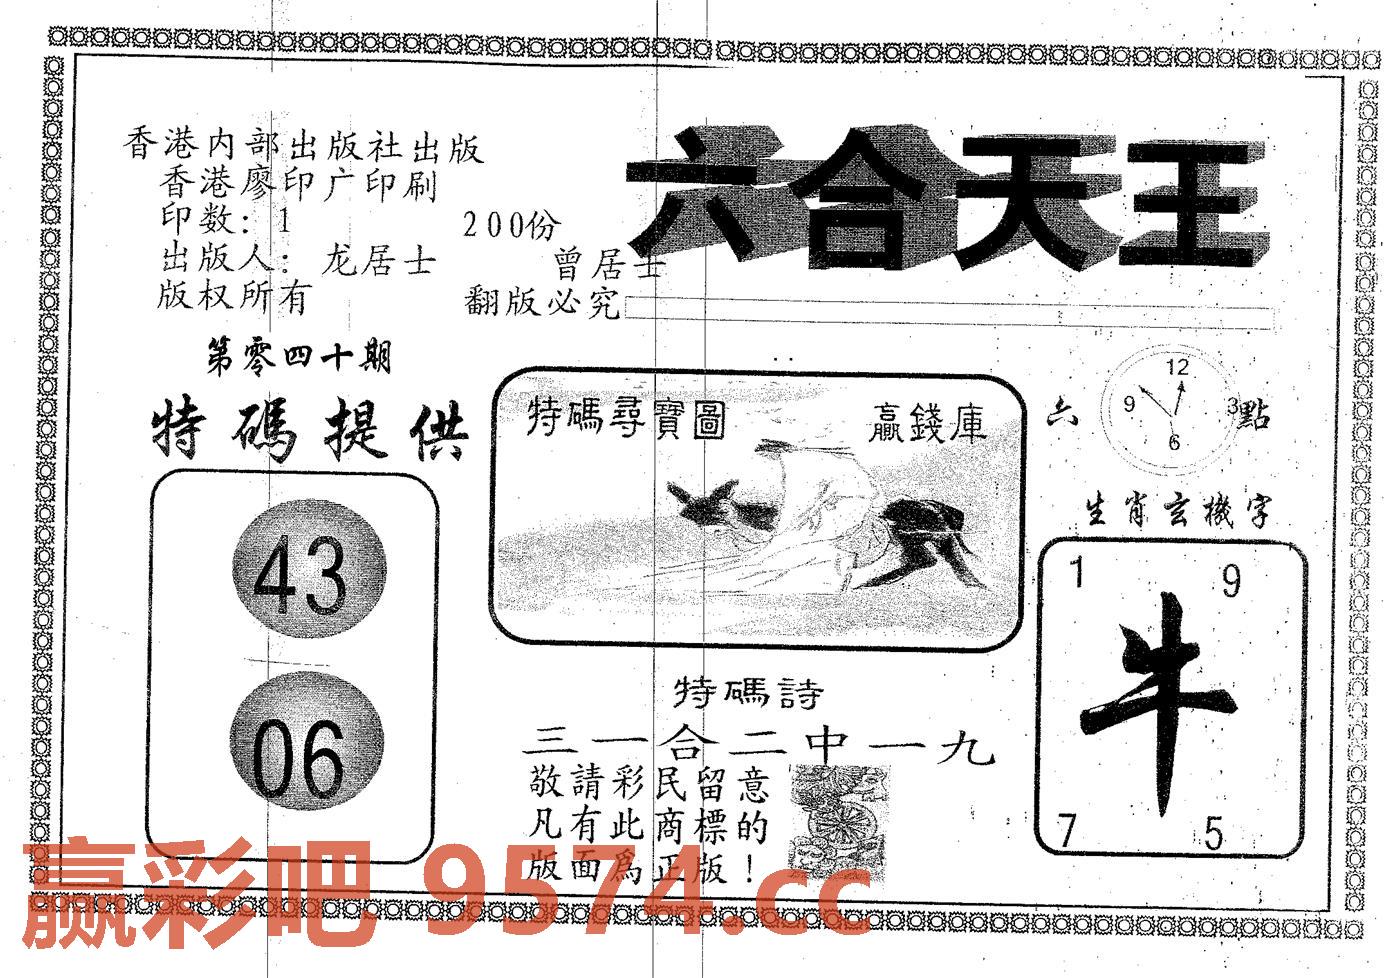 香港内部出版社出版
香港廖印广印刷
印数：1 200份
出版人：龙居士 曾居士
版权所有 翻版必究
六合天王
第零四十期
特碼提供
43
06
特碼尋寶圖 贏錢庫
六 點
12
9 3
6
生肖玄機字
1 9
牛
7 5
特碼詩
三一合二中一九
敬請彩民留意
凡有此商標的
版面為正版！
赢彩吧 9574.cc